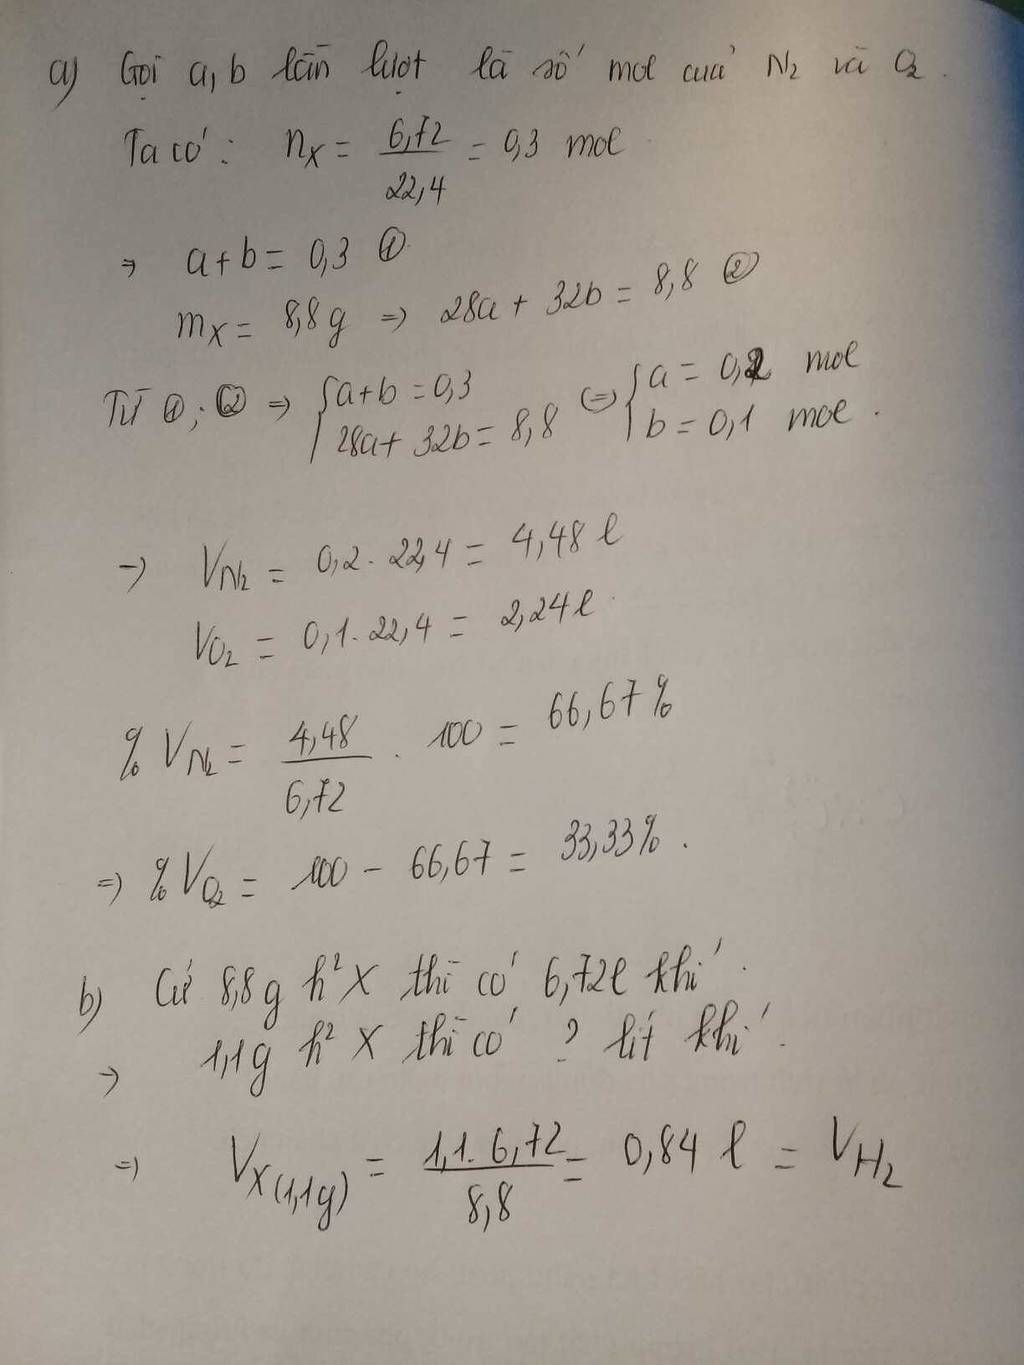 a) Gọi a, b lần lượt là số mol của N₂ và O₂.
Ta có: nX = 6,72/22,4 = 0,3 mol
⇒ a+b = 0,3 ①
mX = 8,8g ⇒ 28a + 32b = 8,8 ②
Từ ①; ② ⇒ { a+b = 0,3 ; 28a + 32b = 8,8 ⇔ { a = 0,2 mol ; b = 0,1 mol.
→ VN₂ = 0,2. 22,4 = 4,48 l
VO₂ = 0,1. 22,4 = 2,24 l.
% VN₂ = 4,48/6,72 . 100 = 66,67%
⇒ % VO₂ = 100 - 66,67 = 33,33%.
b) Cứ 8,8g h² X thì có 6,72l khí.
→ 1,1g h² X thì có ? lít khí.
⇒ VX(1,1g) = 1,1. 6,72/8,8 = 0,84 l = VH₂